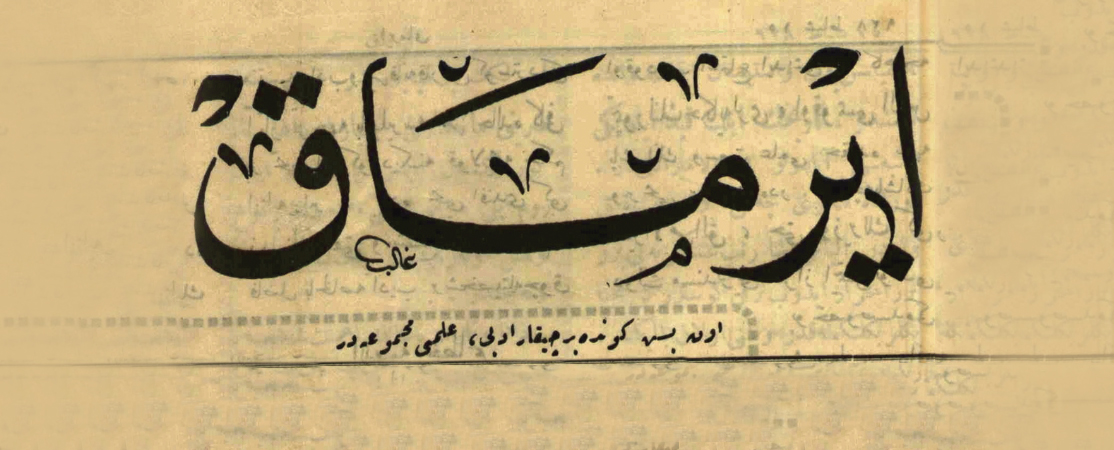 ايرماق
غالب
اون بش كونده بر چيقار ادبى، علمى مجموعه در